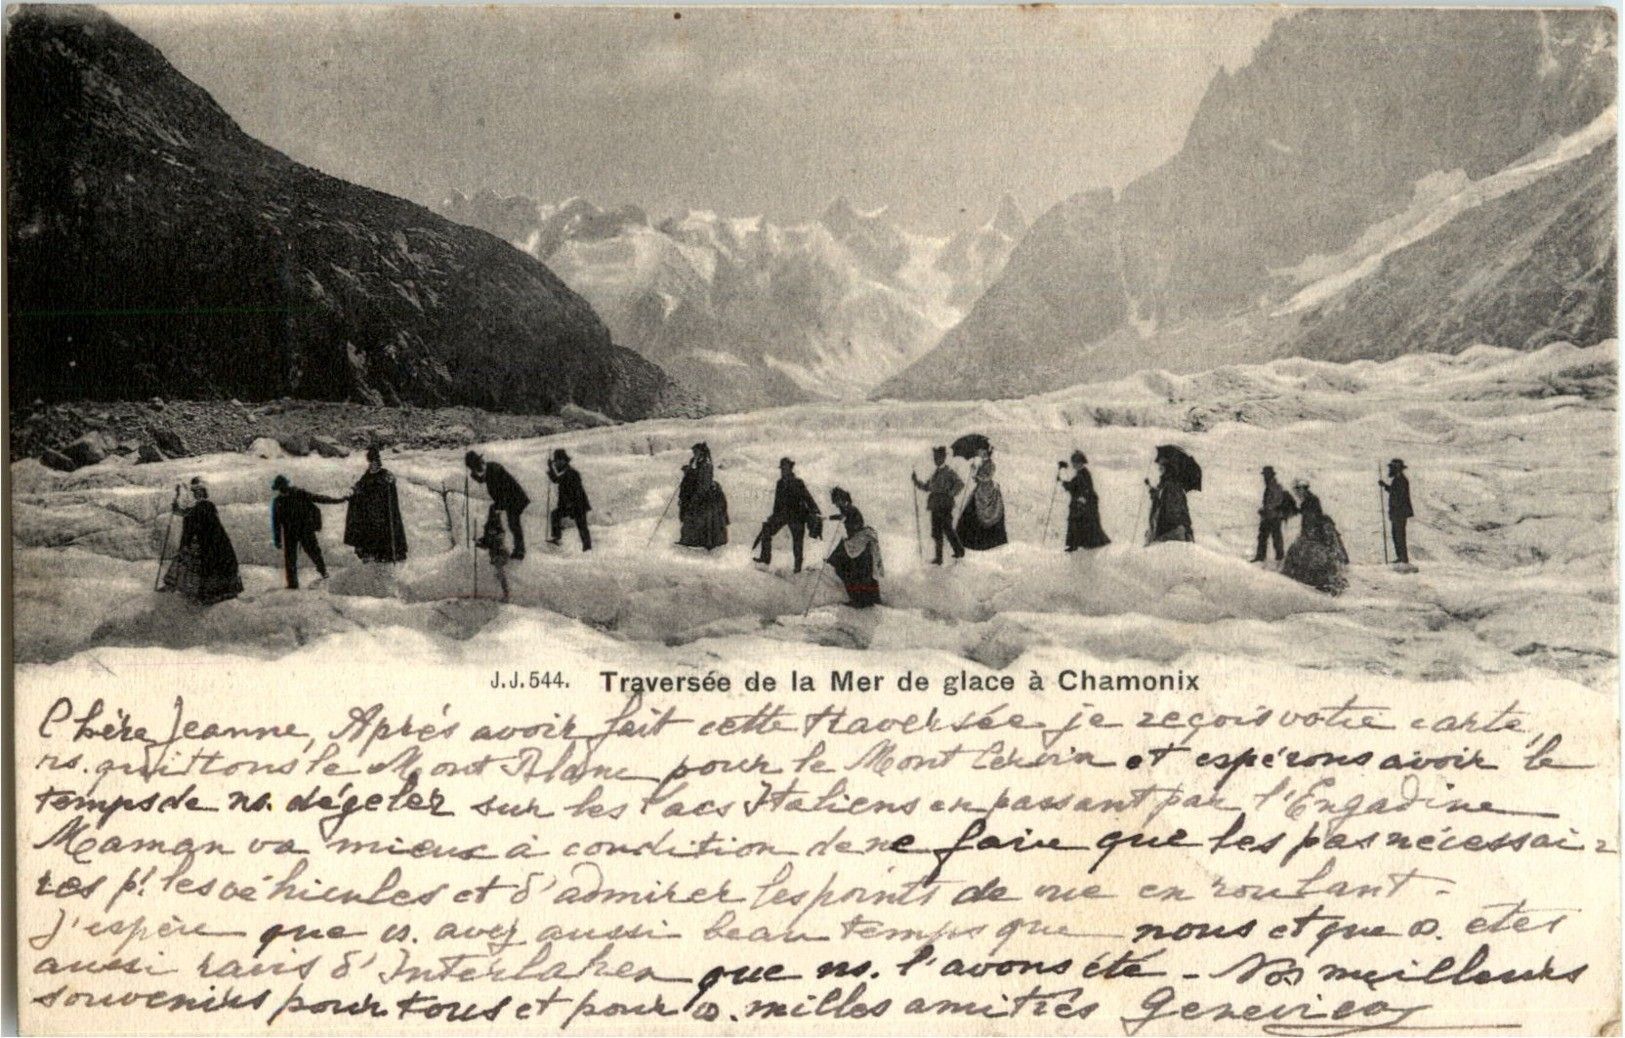 J.J.544. Traversée de la Mer de glace à Chamonix
Chère Jeanne, Après avoir fait cette traversée je reçois votre carte,
ns. quittons le Mont Blanc pour le Mont Cervin et espérons avoir le
temps de ns. dégeler sur les Lacs Italiens en passant par l'Engadine
Maman va mieux à condition de ne faire que les pas nécessai-
res pr. les véhicules et d'admirer les points de vue en roulant -
J'espère que vs. avez aussi beau temps que nous et que v. êtes
aussi ravis d'Interlaken que ns. l'avons été - Nos meilleurs
souvenirs pour tous et pour v. milles amitiés Geneviève